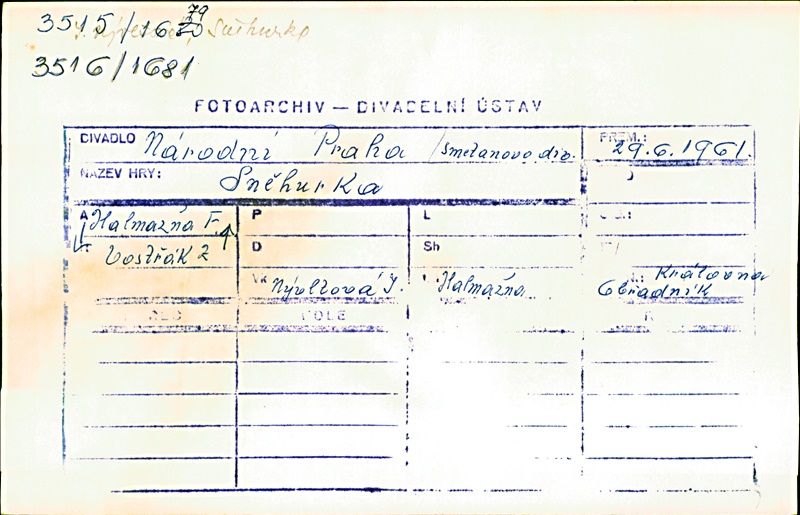 3515/1679
Sněhurka
3516/1681
FOTOARCHIV — DIVADELNÍ ÚSTAV
DIVADLO Národní Praha /Smetanovo div. PREM.: 29.6.1961.
NÁZEV HRY: Sněhurka
A Halmažná F. P L
Vostřák Z D Sh
Nývltová J. Halmažna Královna
Obřadník